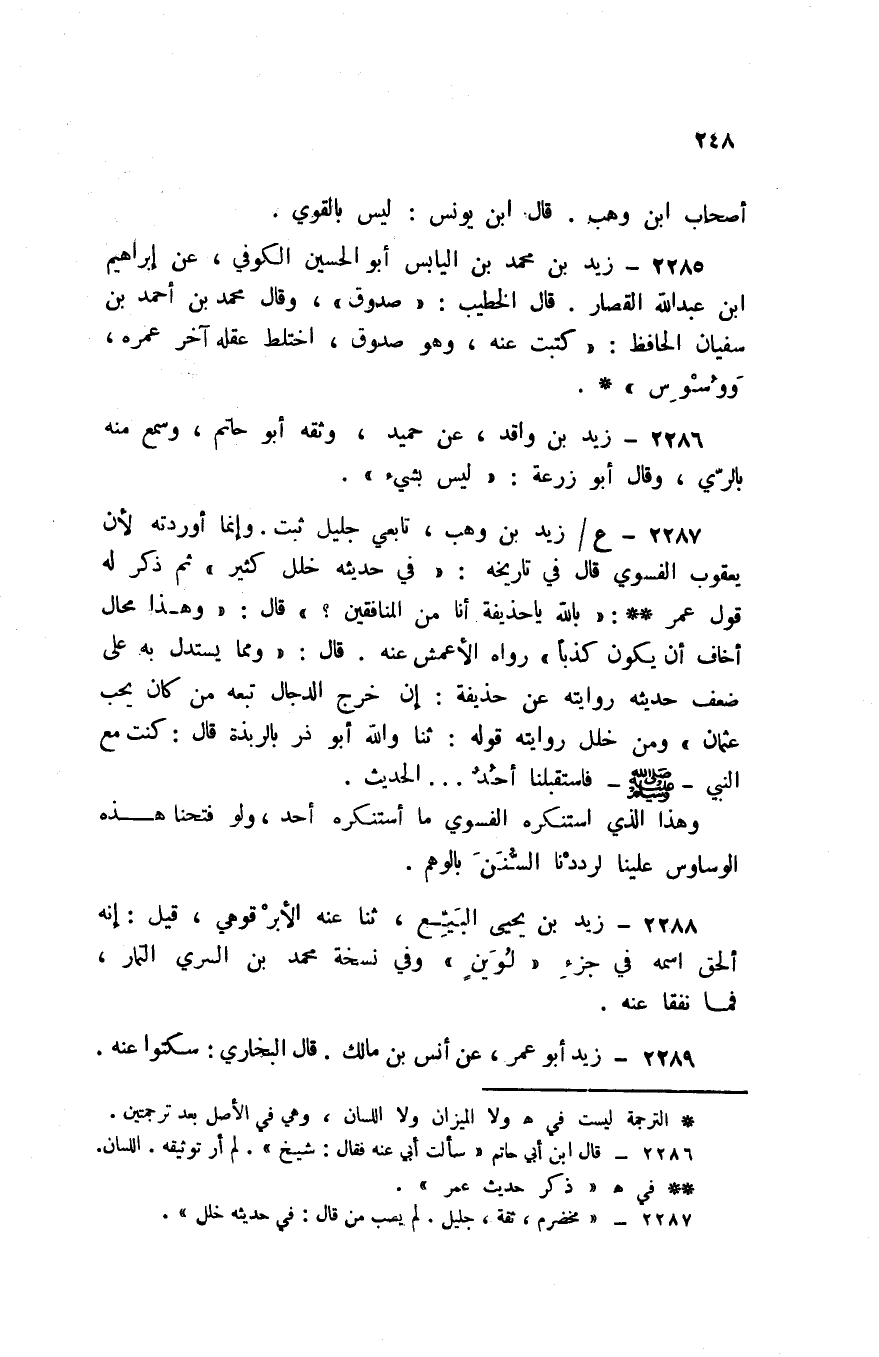 ٢٤٨
أصحاب ابن وهب . قال ابن يونس : ليس بالقوي .
٢٢٨٥ – زيد بن محمد بن اليابس أبو الحسين الكوفي ، عن إبراهيم
ابن عبدالله القصار . قال الخطيب : « صدوق » ، وقال محمد بن أحمد بن
سفيان الحافظ : « كتبت عنه ، وهو صدوق ، اختلط عقله آخر عمره ،
وَوُسْوِس » * .
٢٢٨٦ – زيد بن واقد ، عن حميد ، وثقه أبو حاتم ، وسمع منه
بالرّي ، وقال أبو زرعة : « ليس بشيء » .
٢٢٨٧ – ع / زيد بن وهب ، تابعي جليل ثبت . وإنما أوردته لأن
يعقوب الفسوي قال في تاريخه : « في حديثه خلل كثير » ثم ذكر له
قول عمر ** : « بالله ياحذيفة أنا من المنافقين ؟ » قال : « وهـذا محال
أخاف أن يكون كذباً » رواه الأعمش عنه . قال : « ومما يستدل به على
ضعف حديثه روايته عن حذيفة : إن خرج الدجال تبعه من كان يحب
عثمان » ومن خلل روايته قوله : ثنا والله أبو ذر بالربذة قال : كنت مع
النبي – ﷺ – فاستقبلنا أُحُدٌ ... الحديث .
وهذا الذي استنكره الفسوي ما أستنكره أحد ، ولو فتحنا هـــذه
الوساوس علينا لرددْنا السُّنَنَ بالوهم .
٢٢٨٨ – زيد بن يحيى البَيِّـع ، ثنا عنه الأبرْقوهي ، قيل : إنه
ألحق اسمه في جزءِ « لُوَينٍ » وفي نسخة محمد بن السري التمار ،
فمـا نفقا عنه .
٢٢٨٩ – زيد أبو عمر ، عن أنس بن مالك . قال البخاري : سكتوا عنه .
* الترجمة ليست في ه ولا الميزان ولا اللسان ، وهي في الأصل بعد ترجمتين .
٢٢٨٦ – قال ابن أبي حاتم « سألت أبي عنه فقال : شيخ » . لم أر توثيقه . اللسان.
** في ه « ذكر حديث عمر » .
٢٢٨٧ – « مخضرم ، ثقة ، جليل . لم يصب من قال : في حديثه خلل » .